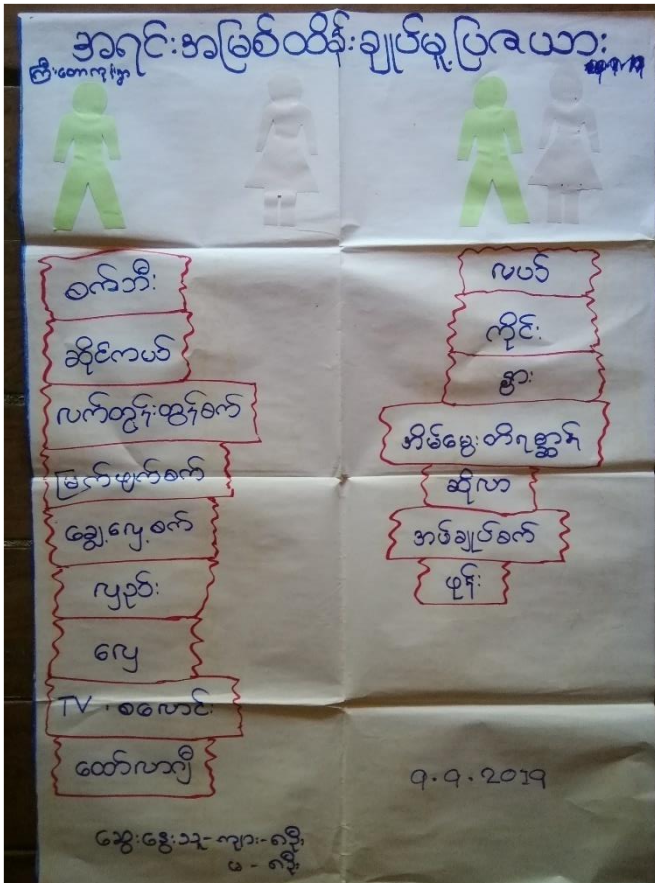 အရင်းအမြစ်ထိန်းချုပ်မှုပြဇယား
စက်ဘီး
ဆိုင်ကယ်
လက်တွန်းထွန်စက်
မြက်ဖျက်စက်
ချွေလှေ့စက်
လှည်း
လှေ
TV ၊ စလောင်း
ထော်လာဂျီ
လယ်
ကိုင်း
နွား
အိမ်မွေးတိရစ္ဆာန်
ဆိုလာ
အပ်ချုပ်စက်
ဖုန်း
9.9.2019
ဆွေးနွေးသူ - ကျား - ၈ဦး
မ - ၈ဦး